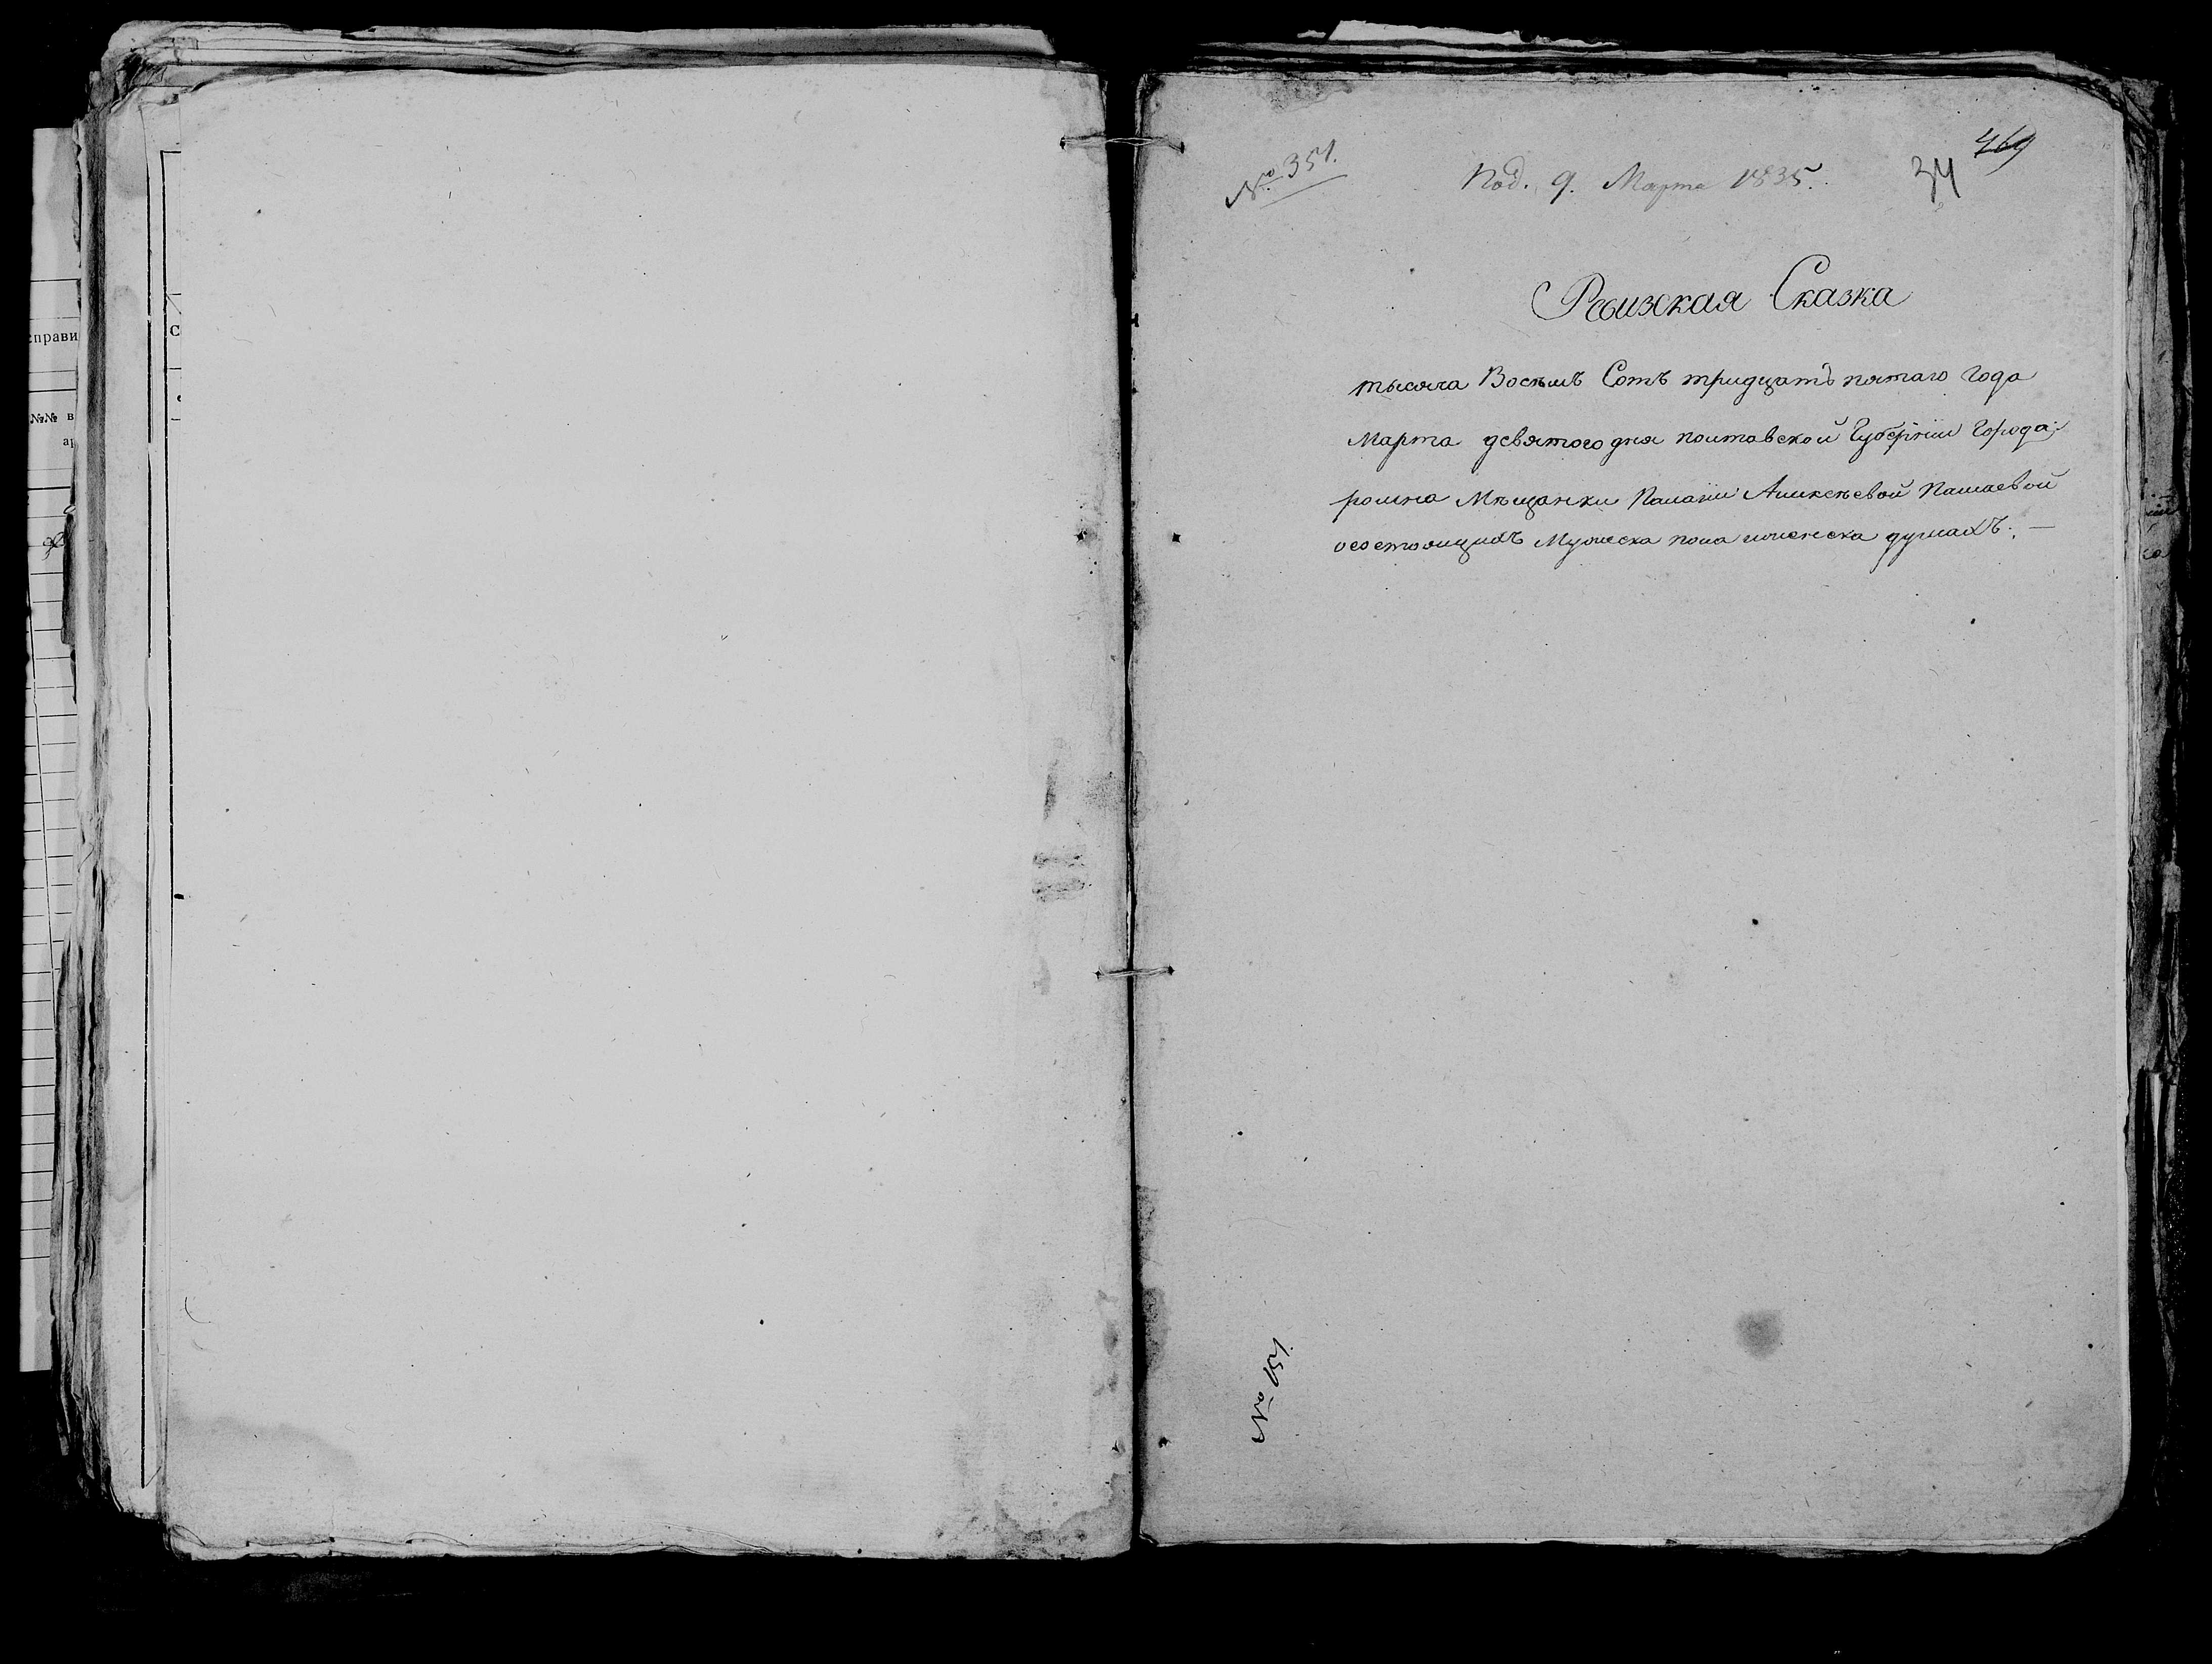 прави
С
№№ в
ар
№ 351.
Под. 9. Марта 1835.
34
469
Ревизкая Сказка
тысяча Восемъ Сотъ тридцатъ пятаго Года
Марта девятого дня полтавской Губерніи Города
ромна Мѣщанки Палагіи Аликсѣевой Палаевой
осостоящихъ Мужеска пола иженска душахъ. —
№ 151.